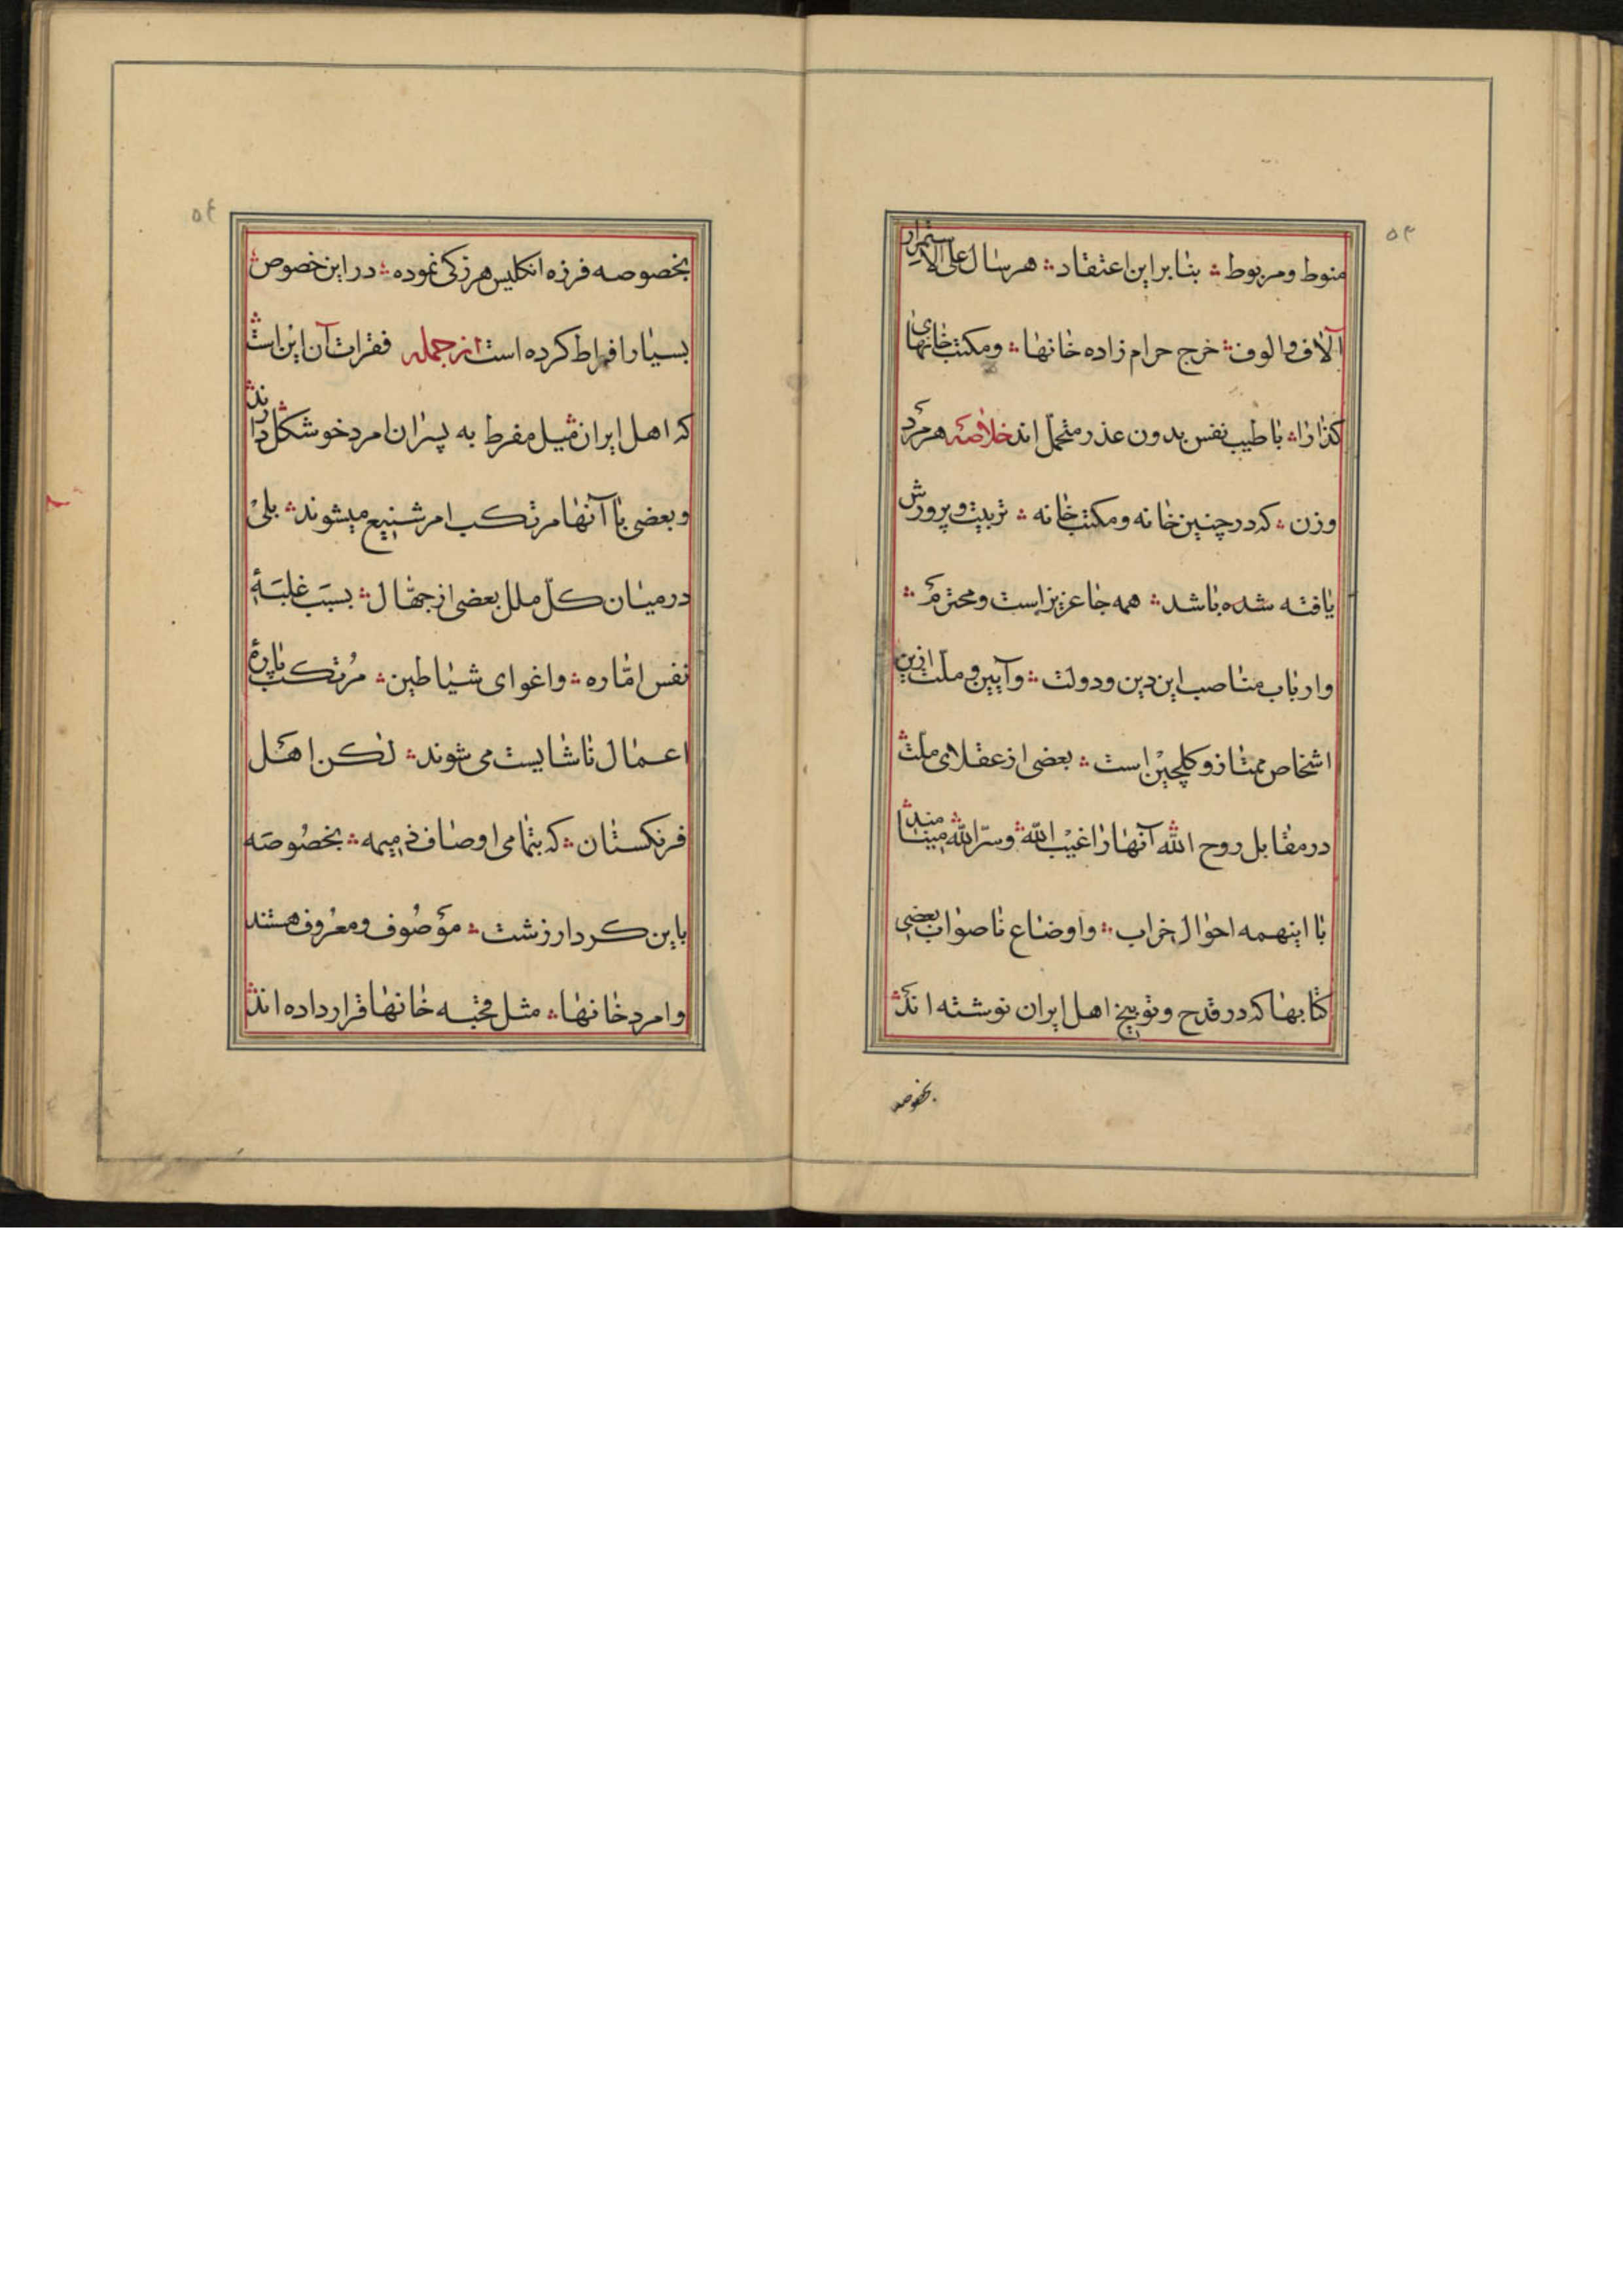 ۵۳
منوط ومربوط ؞ بنا براین اعتقاد ؞ هر سال علی الاستمرار
آلاف والوف ؞ خرج حرام زاده خانها ؞ ومکتب خانهای
کذا را ؞ با طیب نفس بدون عذر متحمل اند خلاصه هر مرد
وزن ؞ که در چنین خانه ومکتب خانه ؞ تربیت وپرورش
یافته شده باشد ؞ همه جا عزیز است ومحترم ؞
وارباب مناصب این دین ودولت ؞ وآیین وملت ازین
اشخاص ممتاز وکلچین است ؞ بعضی از عقلای ملت ؞
در مقابل روح الله آنها را غیب الله ؞ وسرّ الله مینامند ؞
با اینهمه احوال خراب ؞ واوضاع ناصواب بعضی
کتابها که در قدح وتوبیخ اهل ایران نوشته اند ؞
بخصوصه
۵٤
بخصوصه فرزه انکلیس هرزکی نموده ؞ در این خصوص ؞
بسیار افراط کرده است از جمله فقرات آن این است ؞
که اهل ایران میل مفرط به پسران امرد خوشکل دارند ؞
وبعضی با آنها مرتکب امر شنیع میشوند ؞ بلی
در میان کلّ ملل بعضی از جهّال ؞ بسبب غلبهٔ
نفس امّاره ؞ واغوای شیاطین ؞ مرتکب پارهٔ
اعمال ناشایست می شوند ؞ لکن اهل
فرنکستان ؞ که بتمامی اوصاف ذمیمه ؞ بخصوصه
باین کردار زشت ؞ موصوف ومعروف هستند
وامرد خانها ؞ مثل قحبه خانها قرار داده اند ؞